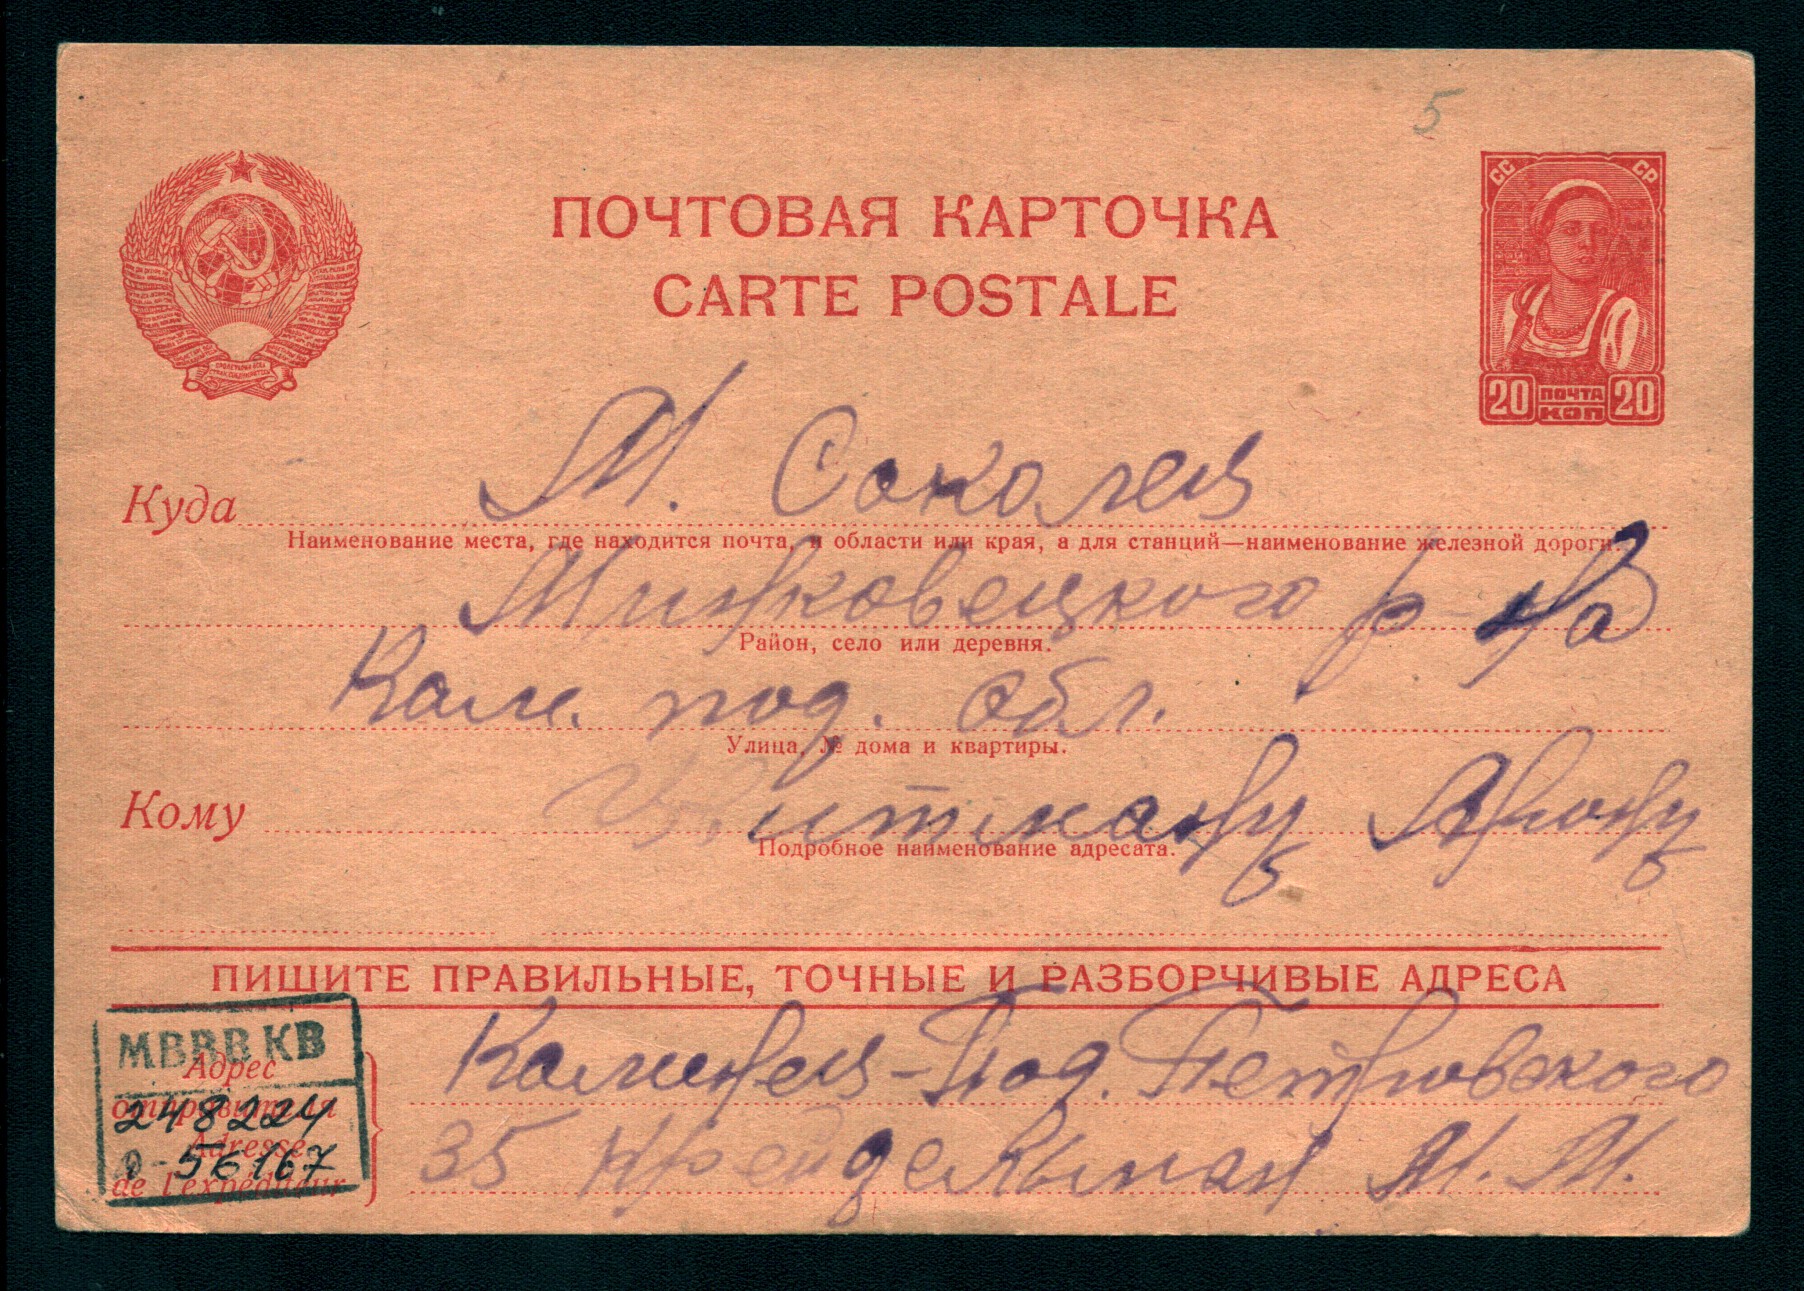 5
СС СР
ПОЧТОВАЯ КАРТОЧКА
CARTE POSTALE
20 ПОЧТА КОП 20
М. Соколец
Куда
Наименование места, где находится почта, и области или края, а для станций—наименование железной дороги.
Миньковецкого р-на
Район, село или деревня.
Кам. под. обл.
Улица, № дома и квартиры.
Кому Арону
Подробное наименование адресата.
ПИШИТЕ ПРАВИЛЬНЫЕ, ТОЧНЫЕ И РАЗБОРЧИВЫЕ АДРЕСА
МВВВКВ
Адрес отправителя
Adresse de l'expéditeur
248224
56167
Каменец-Под. Петровского
35 М. М.